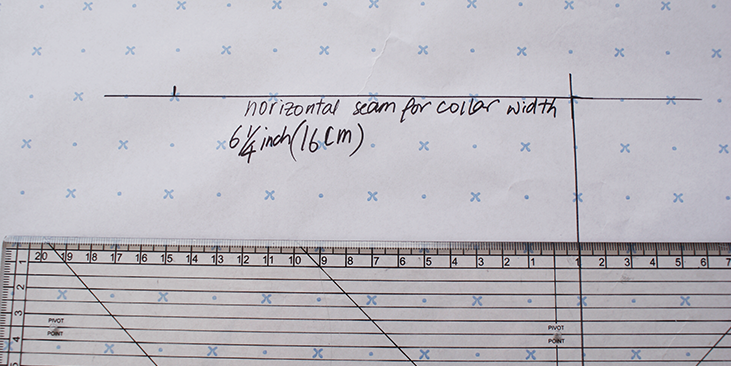 horizontal seam for collar width
6 1/4 inch (16 cm)
20 19 18 17 16 15 14 13 12 11 10 9 8 7 6 5 4 3 2 1 1 2 3 4 5 6 7
1
2
3
PIVOT
POINT
PIVOT
POINT